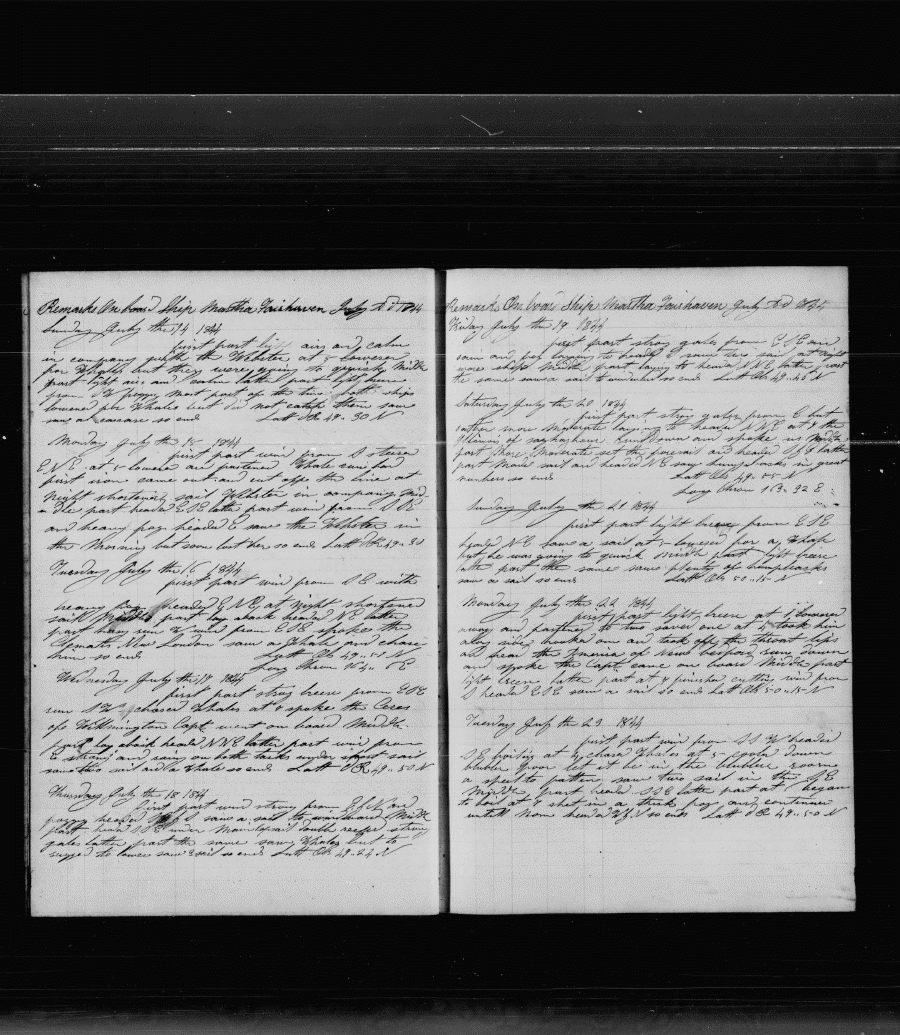 Remarks On board Ship Martha Fairhaven July AD 1844
Sunday July the 14 1844
first part light airs and calm
in company with the Webster at 5 lowered
for Whales but they were going to quick Middle
part light airs and calm latter part light breeze
from foggy most part of the two both ships
lowered for Whales but did not catch them saw
saw a carcase so ends Latt Ob 49.. 30 N
Monday July the 15 1844
first part wind from S steered
E N E at 5 lowered and fastened Whale run
first iron came out and cut off the line at
Night shortened sail Webster in company Mid
dle part headed E S E latter part wind from S S E
and heavy fog headed E saw the Webster in
the Morning but soon lost her so ends Latt Ob 49.. 30
Tuesday July the 16 1844
first part wind from S E with
heavy fog headed E N E at Night shortened
sail Middle part lay aback headed N E latter
part heavy wind from E S E spoke the
New London saw a Whale and chased
him so ends Latt Ob 49..
Long Chron 164.. E
Wednesday July the 17 1844
first part strong breeze from E S E
chased Whales at 8 spoke the Ceres
of Wilmington Capt went on board Middle
part lay aback headed N N E latter part wind from
E strong and rainy on both tacks under short sail
saw two sail and a Whale so ends Latt Ob 49.. 50 N
Thursday July the 18 1844
first part wind strong from and
foggy headed S saw a sail to windward Middle
part headed under Main topsail double reefed strong
gales latter part the same saw Whales but to
rugged to lower saw a sail so ends Latt Ob 49.. 24 N
Remarks On board Ship Martha Fairhaven July AD 1844
Friday July the 19 1844
first part strong gales from E S E and
rain and fog laying to headed saw two sail at Night
wore ship Middle part laying to headed N E latter part
the same saw a sail to windward so ends Latt Ob 49.. 40 N
Saturday July the 20 1844
first part strong gales from E but
rather more Moderate laying to headed N N E at 8 the
of sagharbour run down and spoke us Middle
part More Moderate set the foresail and headed latter
part Made sail and headed N E saw humpbacks in great
numbers so ends Latt Ob 49..
Long Chron 163.. 32 E
Sunday July the 21 1844
first part light breeze from E S E
headed N E saw a sail at 5 lowered for a Whale
but he was going to quick Middle part light breeze
latter part the same saw plenty of humpbacks
saw a sail so ends Latt Ob 50.. 15 N
Monday July the 22 1844
first part light breeze at 1 lowered
away and fastened to two saved one at 5 took him
along side hooked on and took off the throat lips
and head the America of New bedford run down
and spoke the Capt came on board Middle part
light breeze latter part at 8 finished cutting wind from
S headed E S E saw a sail so ends Latt Ob 50.. 15 N
Tuesday July the 23 1844
first part wind from S S W headed
S E boiling at chased Whales at 5 cooled down
blubber poor let it be in the blubber room
a spell to soften saw two sail in the S E
Middle part headed S S E latter part at began
to boil at 8 shut in a thick fog and continued
untill Noon headed so ends Latt Ob 49.. 50 N